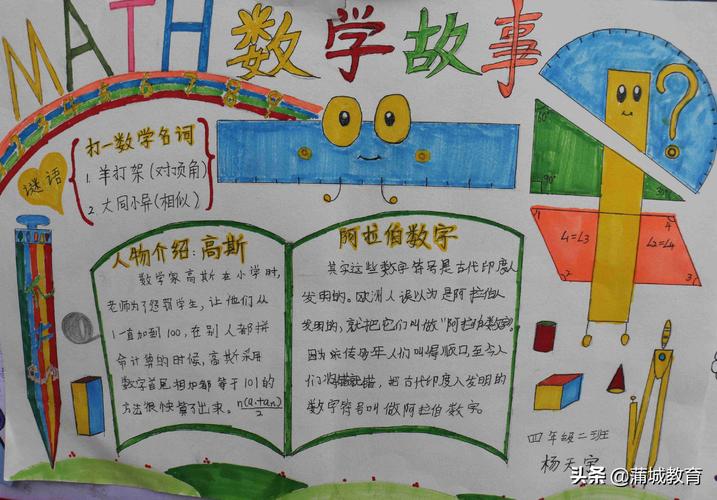 MATH 数学故事
1 2 3 4 5 6 7 8 9
谜语
打一数学名词
1. 羊打架(对顶角)
2. 大同小异(相似)
人物介绍:高斯
数学家高斯在小学时,
老师为了惩罚学生,让他们从
1一直加到100,在别人都拼
命计算的时候,高斯采用
数字首尾相加都等于101的
方法很快算了出来。n(a₁+an)/2
阿拉伯数字
其实这些数字符号是古代印度人
发明的。欧洲人误以为是阿拉伯人
发明的,就把它们叫做“阿拉伯数字”。
因为流传多年人们叫得顺口,至今人
们将错就错,把古代印度人发明的
数学符号叫做阿拉伯数字。
?
60°
90°
30°
1
4
∠1=∠3
∠2=∠4
2
3
四年级二班
杨天宇
头条 @蒲城教育